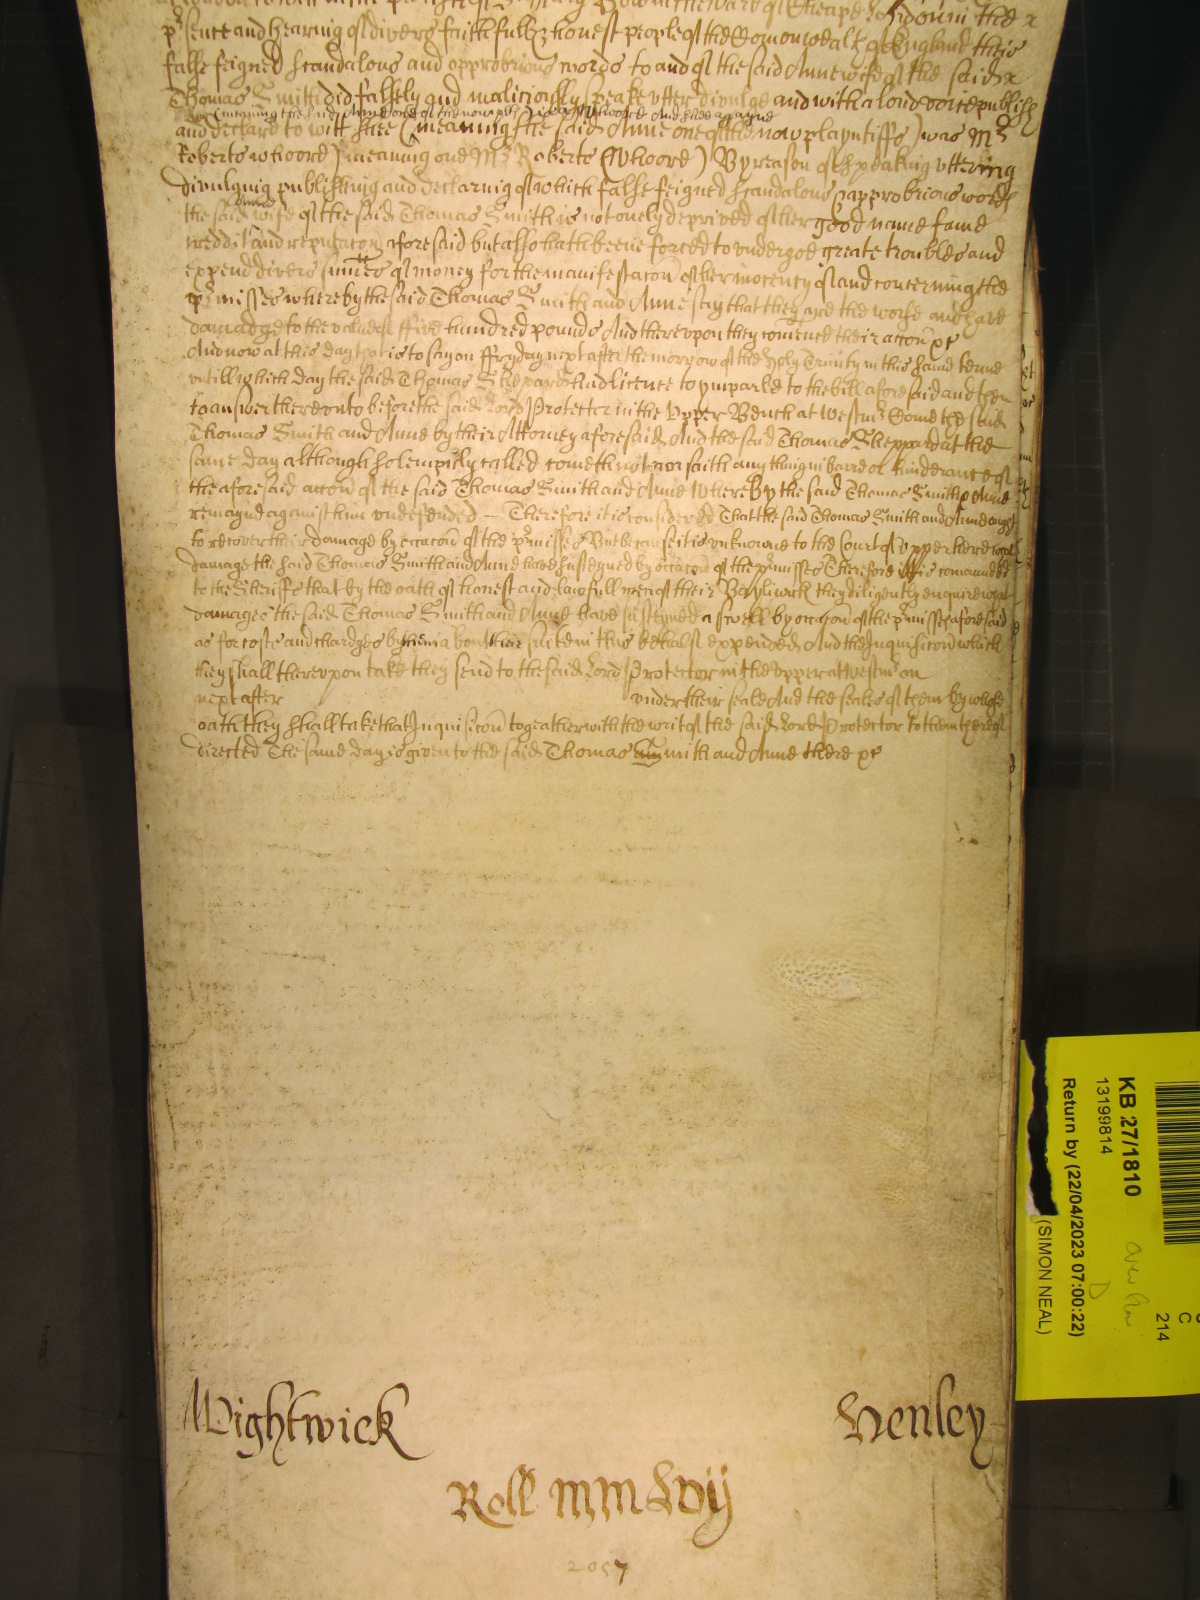 London to witt in the parish of St Mary Bow in the ward of Cheape London in the x
p'sence and hearing of divers faithfull & honest people of the Comonwealth of England theis
false feigned scandalous and opprobrious words to and of the said Anne wife of the said x
Thomas Smith did falsely and maliciously speake utter divulge and with a loud voice publish
(meaning the said Anne one of the now pl) is a whoore And shee againe
and declare to witt shee (meaning the said Anne one of the now playntiffs) was Mr
Roberts whoore) meaning one Mr Roberts (Whoore) By reason of speaking uttering
divulgnig publishing and declarnig of which false feigned scandalous opprobrious words
Anne
the said wife of the said Thomas Smith is not onely deprived of her good name fame
creddit and reputacon aforesaid but also hath beene forced to undergoe greate troubles and
expend divers summes of money for the manifestacon of her inocency of and concerning the
p'misses whereby the said Thomas Smith and Anne say that they are the worse and have
damadge to the value of ffive hundred pounds And thereupon they comence their accon xc
And now at this day that is to say on ffryday next after the morrow of the holy Trinity in this same terme
untill which day the said Thomas Sheppard had licence to ymparle to the bill aforesaid and then
to answer thereunto before the said Lord Protector in the Upper Bench at Westmr Come the said
Thomas Smith and Anne by their Attorney aforesaid And the said Thomas Sheppard at the
same day although solempnly called cometh not nor saith any thing in barre or hinderance of
the aforesaid accon of the said Thomas Smith and Anne Whereby the said Thomas Smith & Anne
remayne against him undefended – Therefore it is considered That the said Thomas Smith and Anne ought
to recover their damage by occacon of the p'misses But because it is unknowne to the Court of upper here what
damage the said Thomas Smith and Anne have susteyned by occacon of the p'misses Therefore it is comanded
to the Sheriffs that by the oath of honest and lawfull men of their Baylywick they diligently enquire what
damages the said Thomas Smith and Anne have susteyned aswell by occacon of the p'misses aforesaid
as for costs and chardges by them about their suite in this behalf expended And the Inquisicon which
they shall thereupon take they send to the said Lord Protector in the upper at Westmr on
next after under their seale And the seales of them by whose
oath they shall take that Inquisicon togeather with the writ of the said Lord Protector to them thereof
directed The same day is given to the said Thomas Smith and Anne there xc
Wightwick
Henley
Roll MMLvij
2057
KB 27/1810
13199814
Return by (22/04/2023 07:00:22)
(SIMON NEAL)
D
C
214